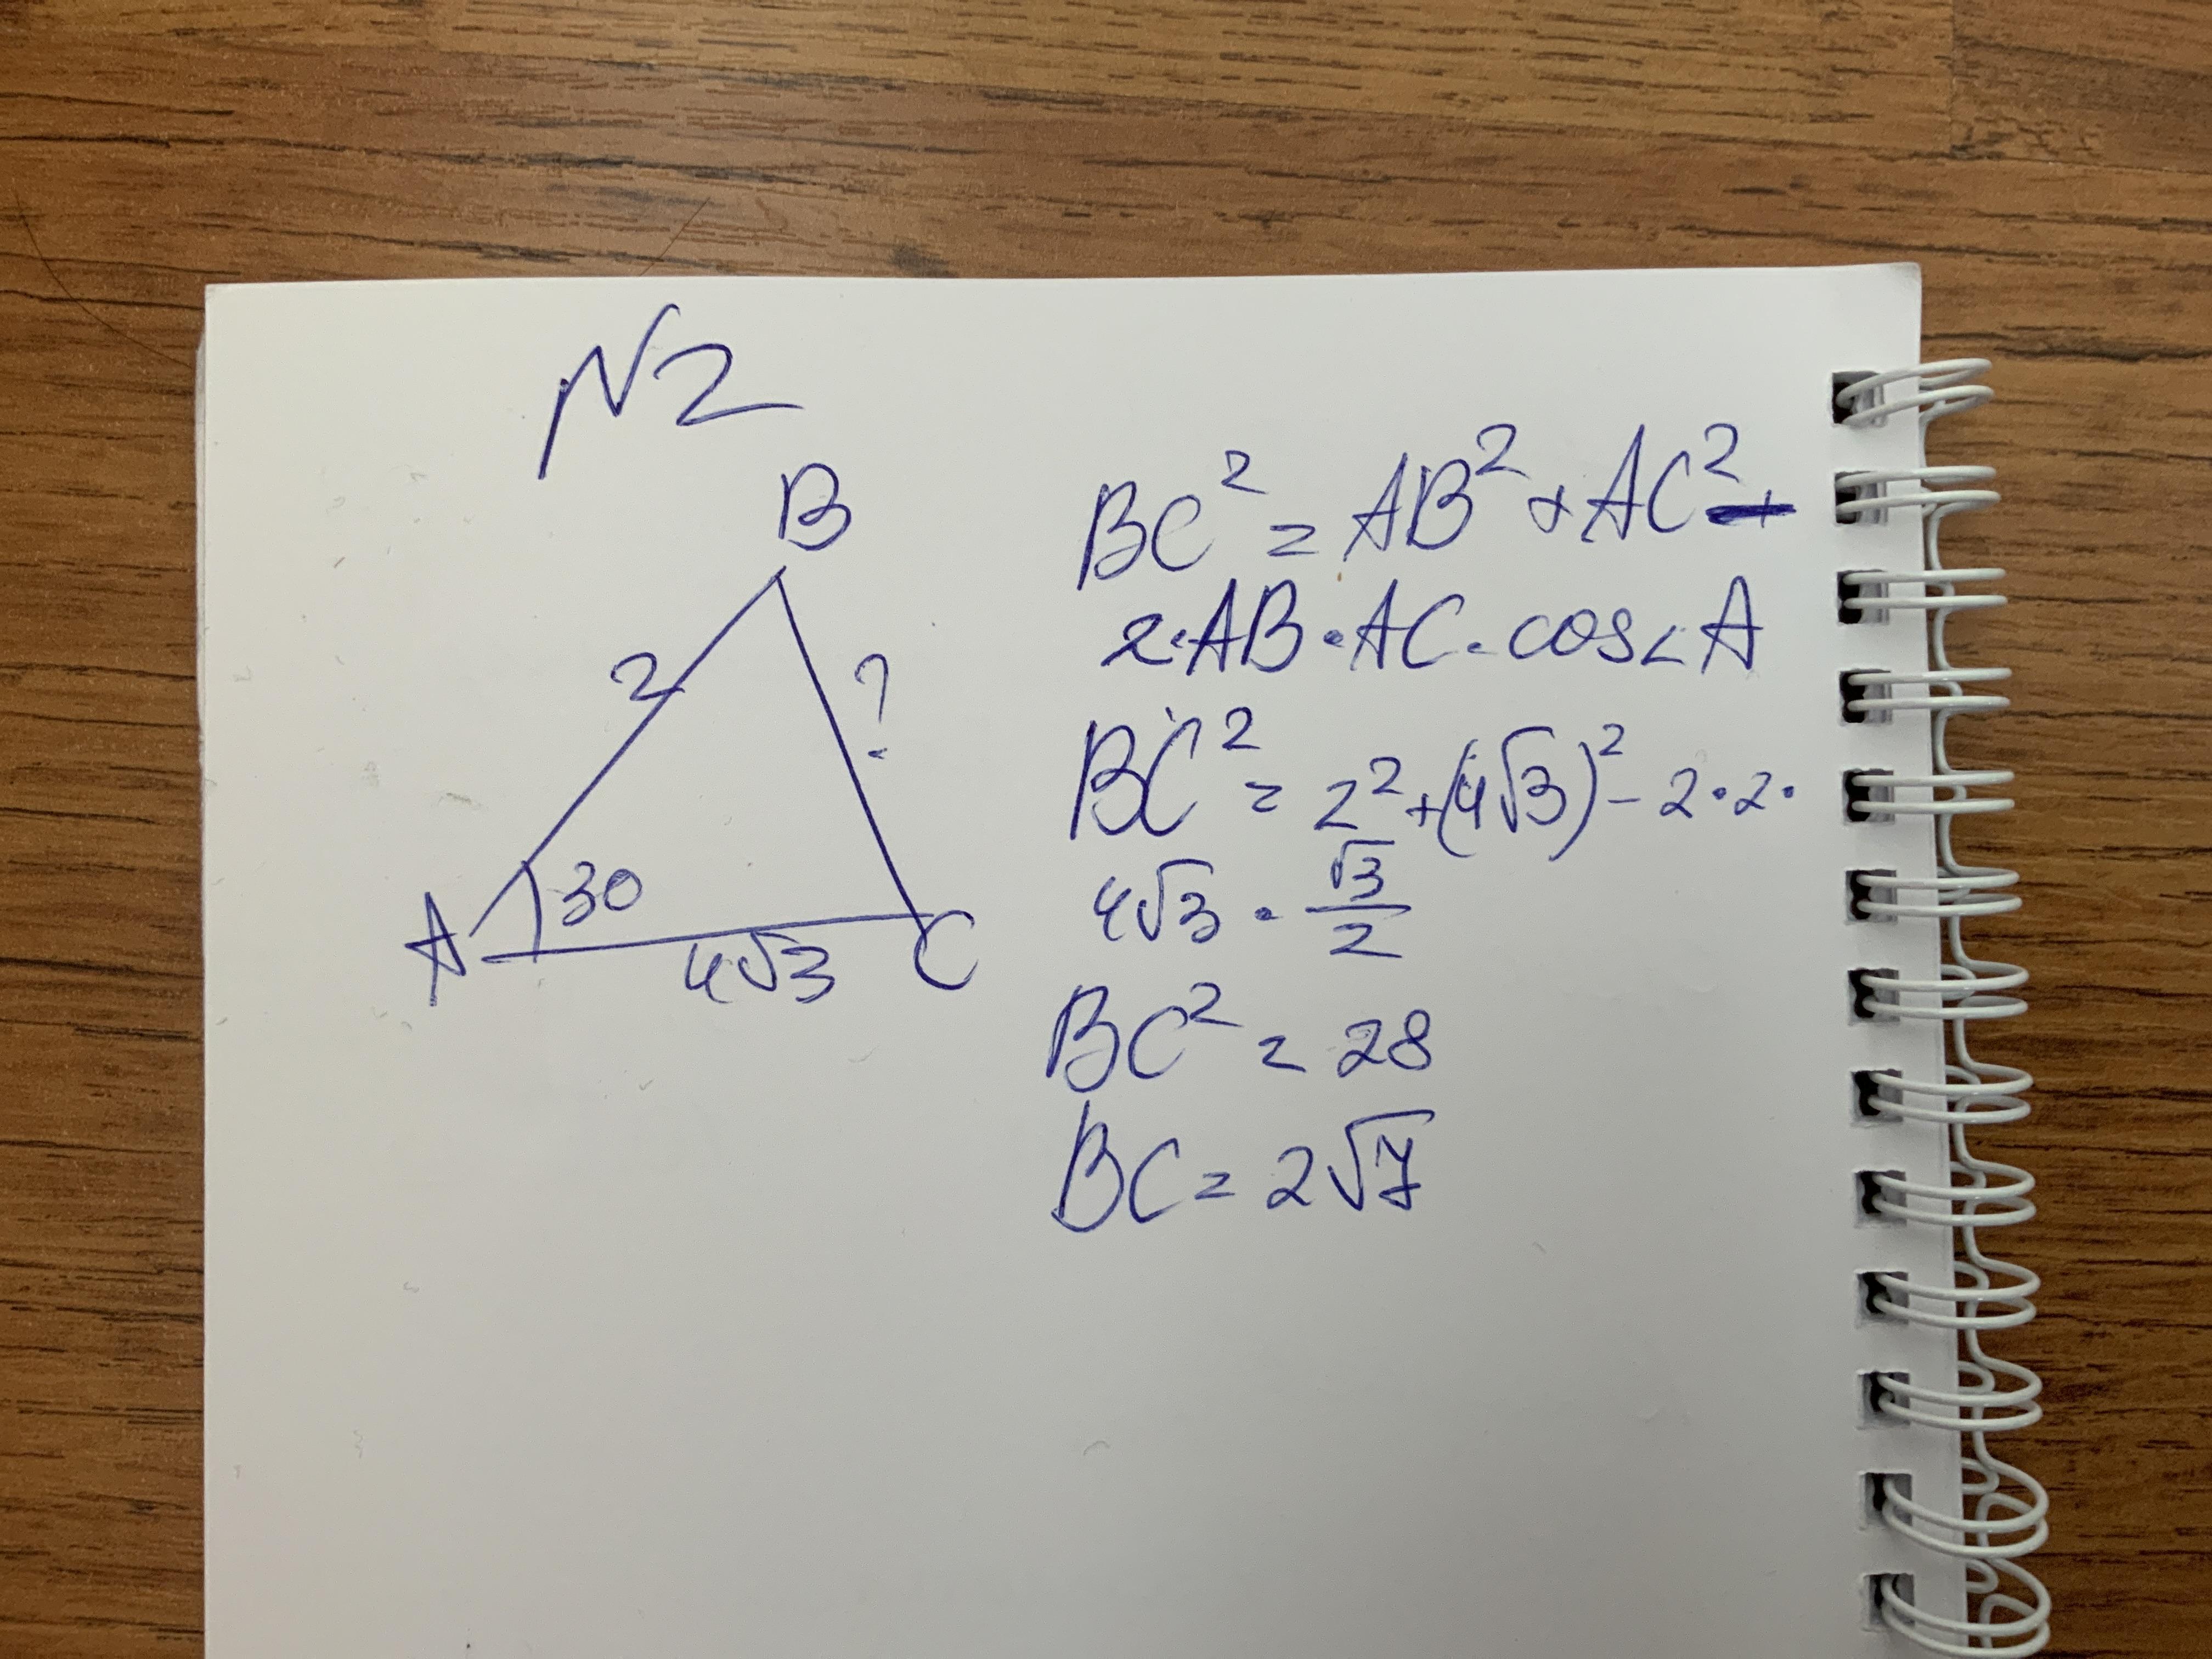 N2
B
2
?
A
30
4√3
C
BC² = AB² + AC² -
2·AB·AC·cos∠A
BC² = 2² + (4√3)² - 2·2·
4√3 · √3/2
BC² = 28
BC = 2√7